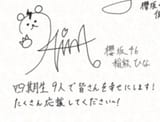 櫻坂46
稲熊ひな
四期生9人で皆さんを幸せにします!
たくさん応援してください~!